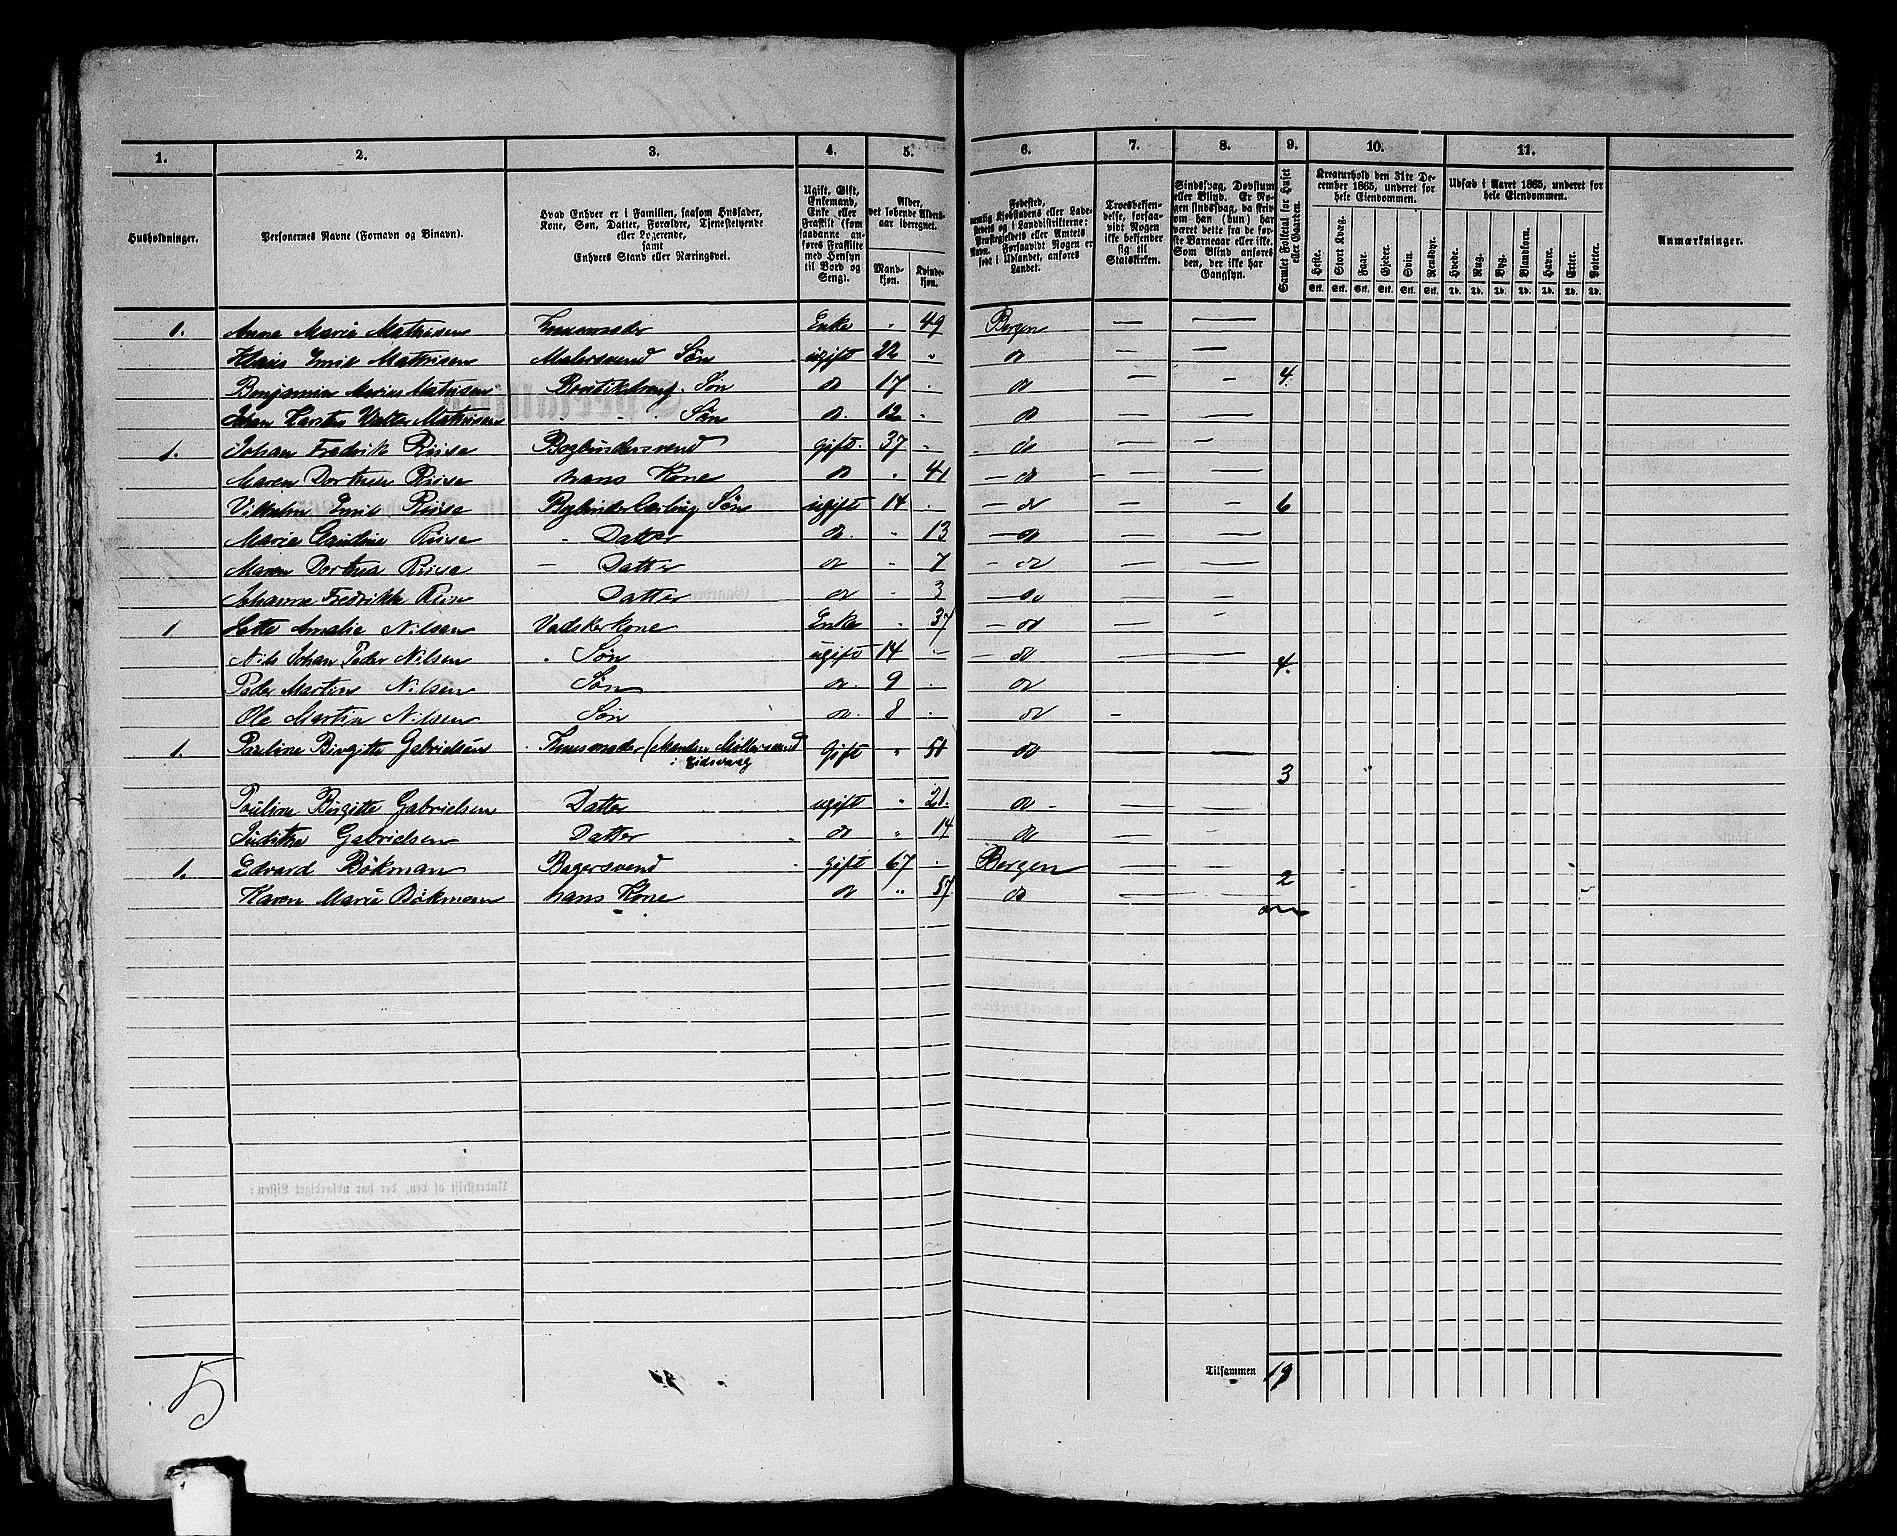 1. 2. 3. 4. 5. 6. 7. 8. 9. 10. 11.
Husholdninger. Personernes Navne (Fornavn og Binavn).
Hvad Enhver er i Familien, saasom Husfader,
Kone, Søn, Datter, Forældre, Tjenestetyende
eller Logerende,
samt
Enhvers Stand eller Næringsvei.
Ugift, Gift,
Enkemand,
Enke eller
Fraskilt (som
saadanne an-
føres Fraskilte
med Hensyn
til Bord og
Seng).
Alder,
det løbende Alders-
aar iberegnet.
Mand-
kjøn.
Kvinde-
kjøn.
Fødested,
nemlig Kjøbstadens eller Lade-
stedets og i Landdistrikterne:
Præstegjeldets eller Amtets
Navn. Forsaavidt Nogen er
født i Udlandet, anføres
Landet.
Troesbekjen-
delse, forsaa-
vidt Nogen
ikke bekjender
sig til
Statskirken.
Sindssvag, Døvstum
eller Blind. Er No-
gen sindssvag, da hvis
om han (hun) har
været dette fra de før-
ste Barneaar eller ikke.
Som Blind anføres
den, der ikke har
Gangsyn.
Samlet Folketal for Huset
eller Gaarden.
Kreaturhold den 31te De-
cember 1865, underet for
hele Eiendommen.
Heste. Stort Kvæg. Faar. Gjeder. Svin. Rensdyr.
Stk. Stk. Stk. Stk. Stk. Stk.
Udsæd i Aaret 1865, underet for
hele Eiendommen.
Hvede. Rug. Byg. Blandkorn. Havre. Erter. Poteter.
Td. Td. Td. Td. Td. Td. Td.
Anmærkninger.
1. Anna Maria Mathisen Huusmoder Enke " 49 Bergen — —
Klaus Emil Mathisen Malersvend Søn ugift 22 " do — —
Benjamin Marius Mathisen Søn do 17 . do — — 4.
Johan Karsten Mathisen Søn do. 12 . do — —
1. Johan Fredrik Riise Bogbindersvend gift. 37 . do — —
Maren Dorthea Riise hans Kone do " 41 — do — —
Vilhelm Emil Riise Bogbinderlærling Søn ugift 14 . — do — — 6
Maria Riise " Datter do. " 13 — do — —
Maren Dorthea Riise — Datter do " 7 — do — —
Johanne Fredrikke Riise Datter do " 3 — do — —
1 Amalie Nilsen Vadskerkone Enke . 37 — do — —
Nils Johan Peder Nilsen . Søn ugift 14 . — do — — 4.
Peder Martin Nilsen Søn do. 9 . do
Ole Martin Nilsen Søn do. 8 . do -
1. Pauline Birgitte Gabrielsen Huusmoder (Manden Møllersvend gift " 51 do — —
i Eidsvaag 3
Pauline Birgitte Gabrielsen Datter ugift " 21. do - — —
Judithe Gabrielsen Datter do " 14 do — —
1. Edvard Bökman Bagersvend Gift 67 . Bergen — — 2
Karen Marie Bökman hans Kone do " 57 do — —
Tilsammen 19
5
Underskrift af den, der har udfærdiget Listen: